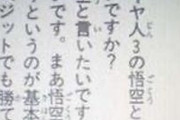 ヤ人3の悟空と
ですか?
と言いたいです
です。まあ悟空
というのが基本
ジットでも勝て